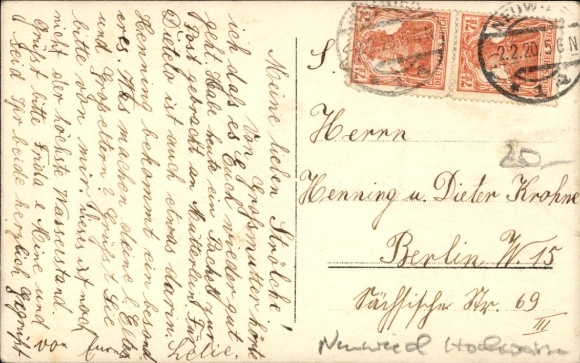 Meine lieben Strolche!
Von Großmutter hörte
ich daß es Euch wieder gut
geht. Habe heute ein Packet zur
Post gebracht an Mutterlein. Für
Dieter ist auch etwas darin.
Henning bekommt ein besond
eres. Was machen deine
und Großeltern? Grüßt Sie
bitte von mir. Dieses ist noch
nicht der höchste Wasserstand.
Grüßt bitte Frida u. Meine und
seid Ihr beide herzlich gegrüßt
von Eurer
NEUW
2.2.20. 5-6 N
7½
S.
Herrn
Henning u. Dieter Krohne
Berlin W. 15
Sächsische Str. 69
III
20
Neuwied Hochwasser